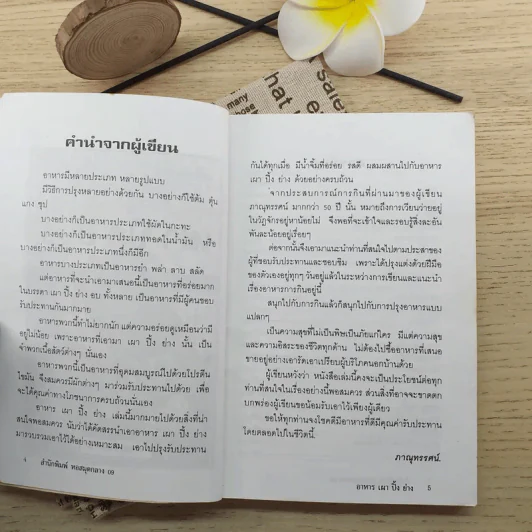 คำนำจากผู้เขียน
อาหารมีหลายประเภท หลายรูปแบบ
มีวิธีการปรุงหลายอย่างด้วยกัน บางอย่างก็ใช้ต้ม ตุ๋น
แกง ซุป
บางอย่างก็เป็นอาหารประเภทใช้ผัดในกะทะ
บางอย่างก็เป็นอาหารประเภททอดในน้ำมัน หรือ
บางอย่างก็เป็นอาหารประเภทนึ่งก็มีอีก
อาหารบางประเภทเป็นอาหารยำ พล่า ลาบ สลัด
แต่อาหารที่จะนำเอามาเสนอนี้เป็นอาหารที่อร่อยมาก
ในบรรดา เผา ปิ้ง ย่าง อบ ทั้งหลาย เป็นอาหารที่มีผู้คนชอบ
รับประทานกันมากมาย
อาหารพวกนี้ทำไม่ยากนัก แต่ความอร่อยดูเหมือนว่ามี
อยู่ไม่น้อย เพราะอาหารที่เอามา เผา ปิ้ง ย่าง นั้น เป็น
จำพวกเนื้อสัตว์ต่างๆ นั่นเอง
อาหารพวกนี้เป็นอาหารที่อุดมสมบูรณ์ไปด้วยโปรตีน
ไขมัน จึงสมควรมีผักต่างๆ มาร่วมรับประทานไปด้วย เพื่อ
จะได้คุณค่าทางโภชนาการครบถ้วนนั่นเอง
อาหาร เผา ปิ้ง ย่าง เล่มนี้มากมายไปด้วยสิ่งที่น่า
สนใจพอสมควร นับว่าได้คัดสรรนำเอาอาหาร เผา ปิ้ง ย่าง
มารวบรวมเอาไว้ได้อย่างเหมาะสม เอาไปปรุงรับประทาน
4 สำนักพิมพ์ หอสมุดกลาง 09
กันได้ทุกเมื่อ มีน้ำจิ้มที่อร่อย รสดี ผสมผสานไปกับอาหาร
เผา ปิ้ง ย่าง ด้วยอย่างครบถ้วน
จากประสบการณ์การกินที่ผ่านมาของผู้เขียน
ภาณุทรรศน์ มากกว่า 50 ปี นั้น หมายถึงการเวียนว่ายอยู่
ในวัฏจักรอยู่หาน้อยไม่ จึงพอที่จะเข้าใจและรอบรู้สิ่งละอัน
พันละน้อยอยู่เรื่อยๆ
ต่อจากนั้นจึงเอามาแนะนำท่านที่สนใจไปตามประสาของ
ผู้ที่ชอบรับประทานและชอบชิม เพราะได้ปรุงแต่งด้วยฝีมือ
ของตัวเองอยู่ทุกๆ วันอยู่แล้วในระหว่างการเขียนและแนะนำ
เรื่องอาหารการกินอยู่นี้
สนุกไปกับการกินแล้วก็สนุกไปกับการปรุงอาหารแบบ
แปลกๆ
เป็นความสุขที่ไม่เป็นพิษเป็นภัยแก่ใคร มีแต่ความสุข
และความอิสระของชีวิตทุกด้าน ไม่ต้องไปซื้ออาหารที่เสนอ
ขายอยู่อย่างเอารัดเอาเปรียบผู้บริโภคนอกบ้านด้วย
ผู้เขียนหวังว่า หนังสือเล่มนี้คงจะเป็นประโยชน์ต่อทุก
ท่านที่สนใจในเรื่องอย่างนี้พอสมควร ส่วนสิ่งที่อาจจะขาดตก
บกพร่องผู้เขียนขอน้อมรับเอาไว้เพียงผู้เดียว
ขอให้ทุกท่านจงโชคดีมีอาหารที่ดีมีคุณค่ารับประทาน
โดยตลอดไปในชีวิตนี้.
ภาณุทรรศน์.
อาหาร เผา ปิ้ง ย่าง 5
many